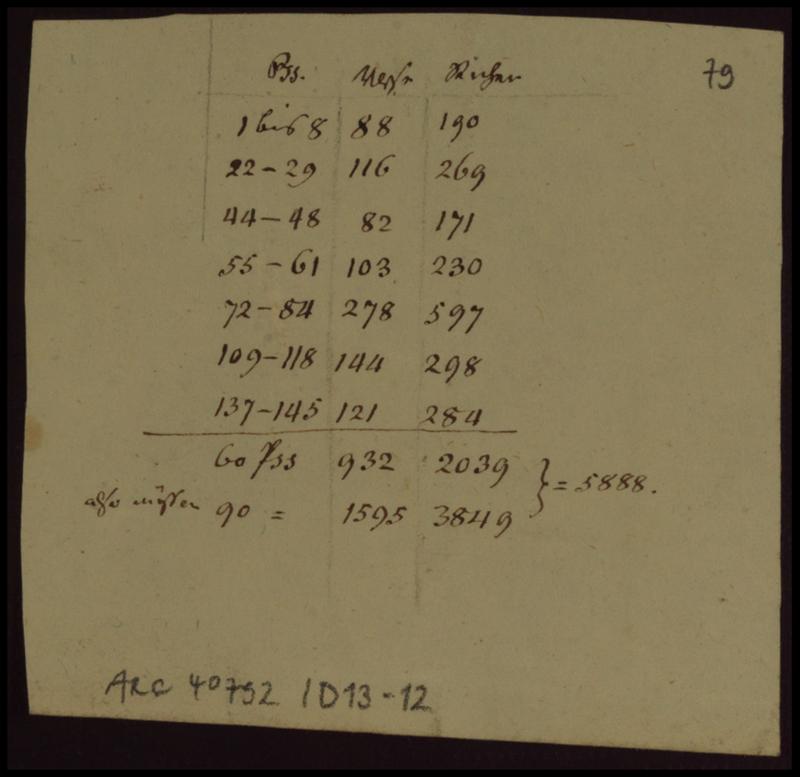 79
Pss. Verse Stichen
1 bis 8 88 190
22 - 29 116 269
44 - 48 82 171
55 - 61 103 230
72 - 84 278 597
109 - 118 144 298
137 - 145 121 284
60 Pss 932 2039
} = 5888.
also müssen 90 = 1595 3849
ARC 4° 792 / D13-12